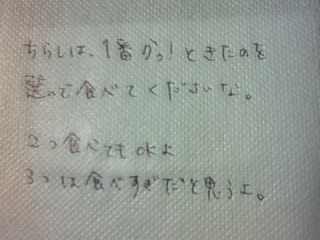 ちらしは、1番がっ!ときたのを
選んで食べてくださいな。
2つ食べてもOKよ
3つは食べすぎだと思うよ。